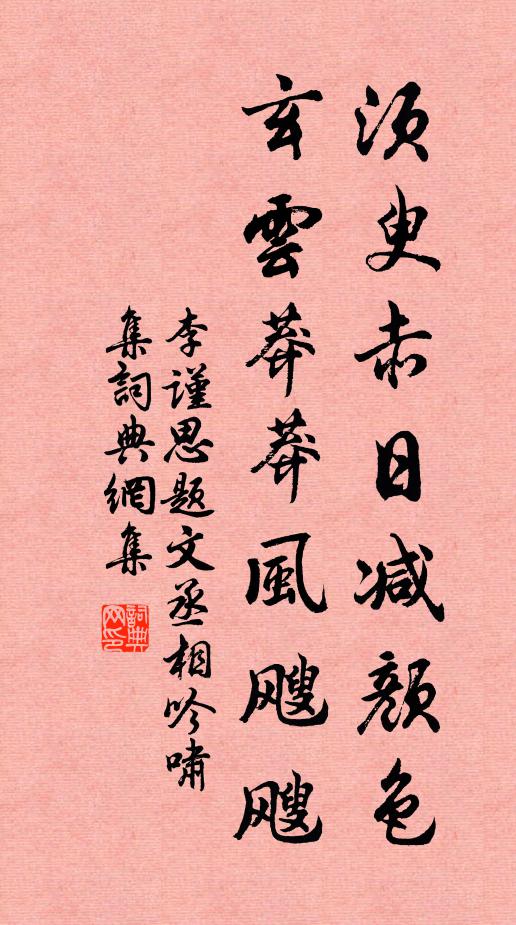 须臾赤日减颜色
玄雲莽莽風颼颼
李謹思题文丞相吟嘯
集詞典網集
詞典网印